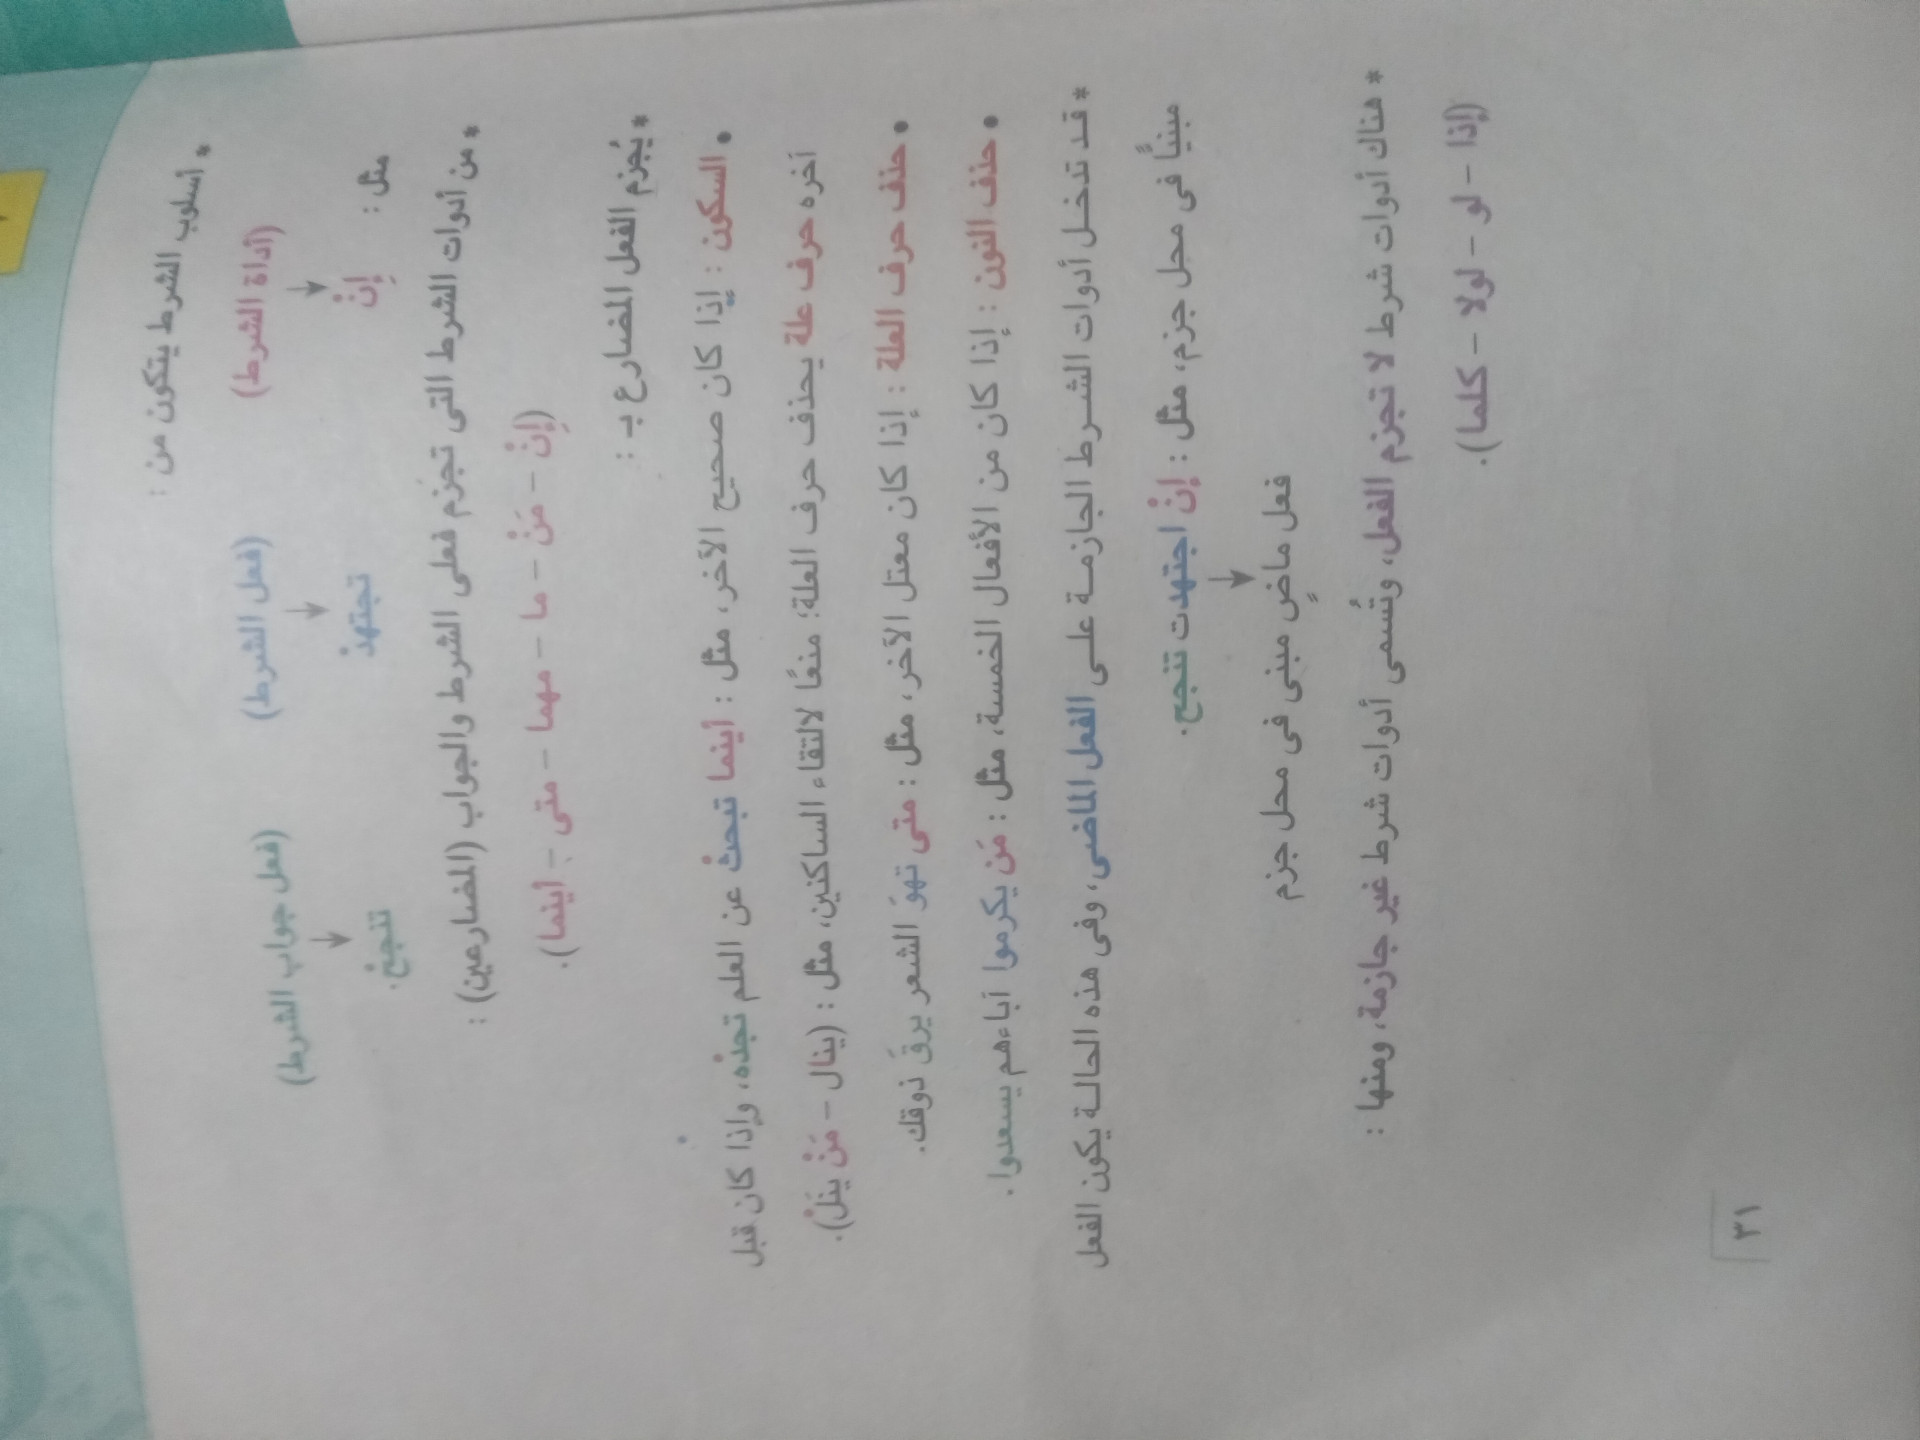 * أسلوب الشرط يتكون من :
(أداة الشرط) (فعل الشرط) (فعل جواب الشرط)
مثل : إِنْ تجتهدْ تنجحْ.
* من أدوات الشرط التى تجزم فعلى الشرط والجواب (المضارعين) :
(إِنْ - مَنْ - ما - مهما - متى - أينما).
* يُجزم الفعل المضارع بـ :
• السكون : إذا كان صحيح الآخر، مثل : أينما تبحثْ عن العلم تجدْه، وإذا كان قبل
آخره حرف علة يحذف حرف العلة؛ منعًا لالتقاء الساكنين، مثل : (ينال - مَنْ ينلْ).
• حذف حرف العلة : إذا كان معتل الآخر، مثل : متى تهوَ الشعر يرقَ ذوقك.
• حذف النون : إذا كان من الأفعال الخمسة، مثل : مَن يكرموا آباءهم يسعدوا.
* قد تدخل أدوات الشرط الجازمة على الفعل الماضى، وفى هذه الحالة يكون الفعل
مبنيًّا فى محل جزم، مثل : إنْ اجتهدت تنجح.
فعل ماضٍ مبنى فى محل جزم
* هناك أدوات شرط لا تجزم الفعل، وتُسمى أدوات شرط غير جازمة، ومنها :
(إذا - لو - لولا - كلما).
٣١